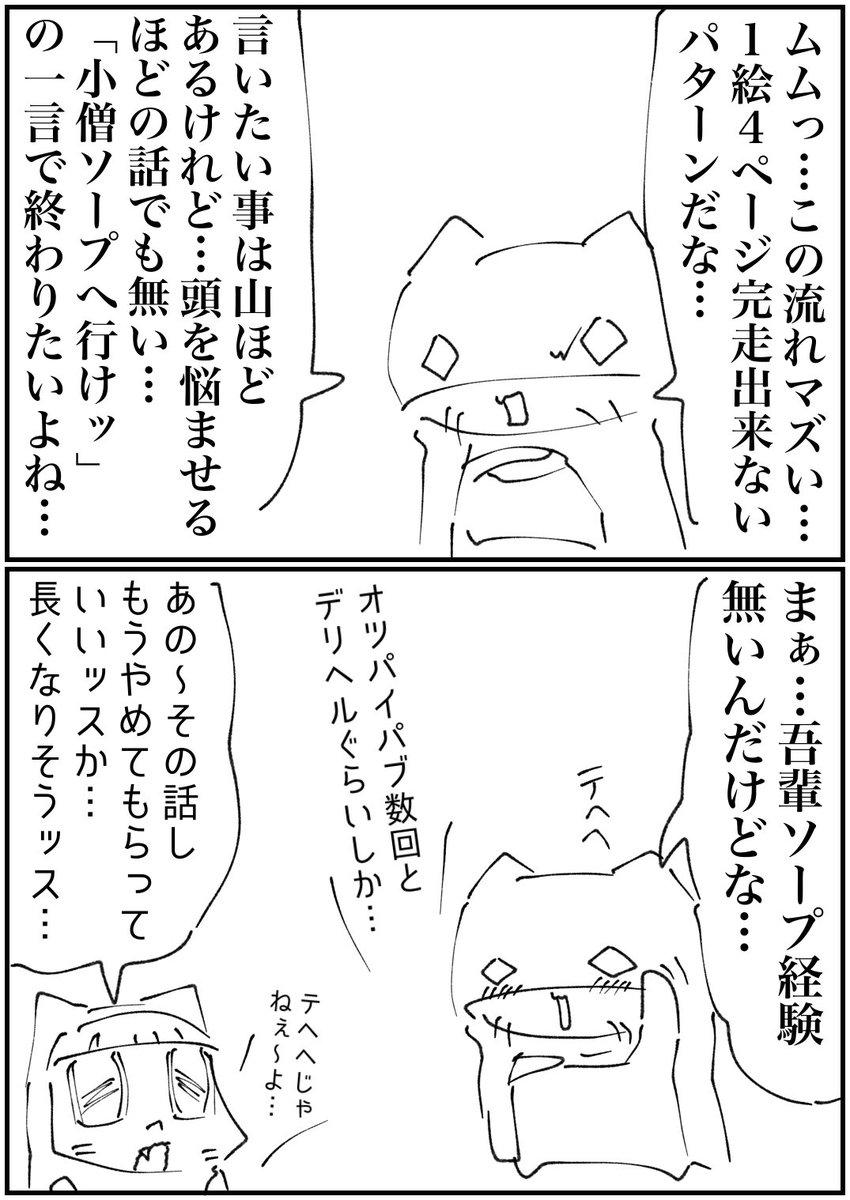 ムムっ…この流れマズい…
1絵4ページ完走出来ない
パターンだな…
言いたい事は山ほど
あるけれど…頭を悩ませる
ほどの話でも無い…
「小僧ソープへ行けッ」
の一言で終わりたいよね…
まぁ…吾輩ソープ経験
無いんだけどな…
テヘヘ
オツパイパブ数回と
デリヘルぐらいしか…
あの～その話し
もうやめてもらって
いいッスか…
長くなりそうッス…
テヘヘじゃ
ねぇ～よ…